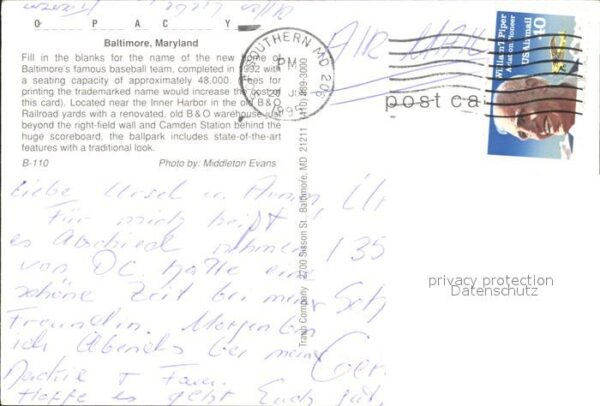 O P A C Y
Baltimore, Maryland
Fill in the blanks for the name of the new home of
Baltimore's famous baseball team, completed in 1992 with
a seating capacity of approximately 48,000. (Fees for
printing the trademarked name would increase the cost of
this card). Located near the Inner Harbor in the old B&O
Railroad yards with a renovated, old B&O warehouse just
beyond the right-field wall and Camden Station behind the
huge scoreboard, the ballpark includes state-of-the-art
features with a traditional look.
B-110 Photo by: Middleton Evans
SOUTHERN MD 20
PM
AIR MAIL
William T. Piper
Aviation Pioneer
US Airmail
40
post ca
Traub Company 2700 Sisson St. Baltimore, MD 21211 (410) 889-3000
Liebe Ursel u. Armin,
Für mich heißt
es Abschied nehmen
von DC. hatte eine
schöne Zeit bei meiner
Freundin. Morgen bin
ich Abends bei meine
+ Fam.
Hoffe es geht Euch gut.
135
Ger
privacy protection
Datenschutz